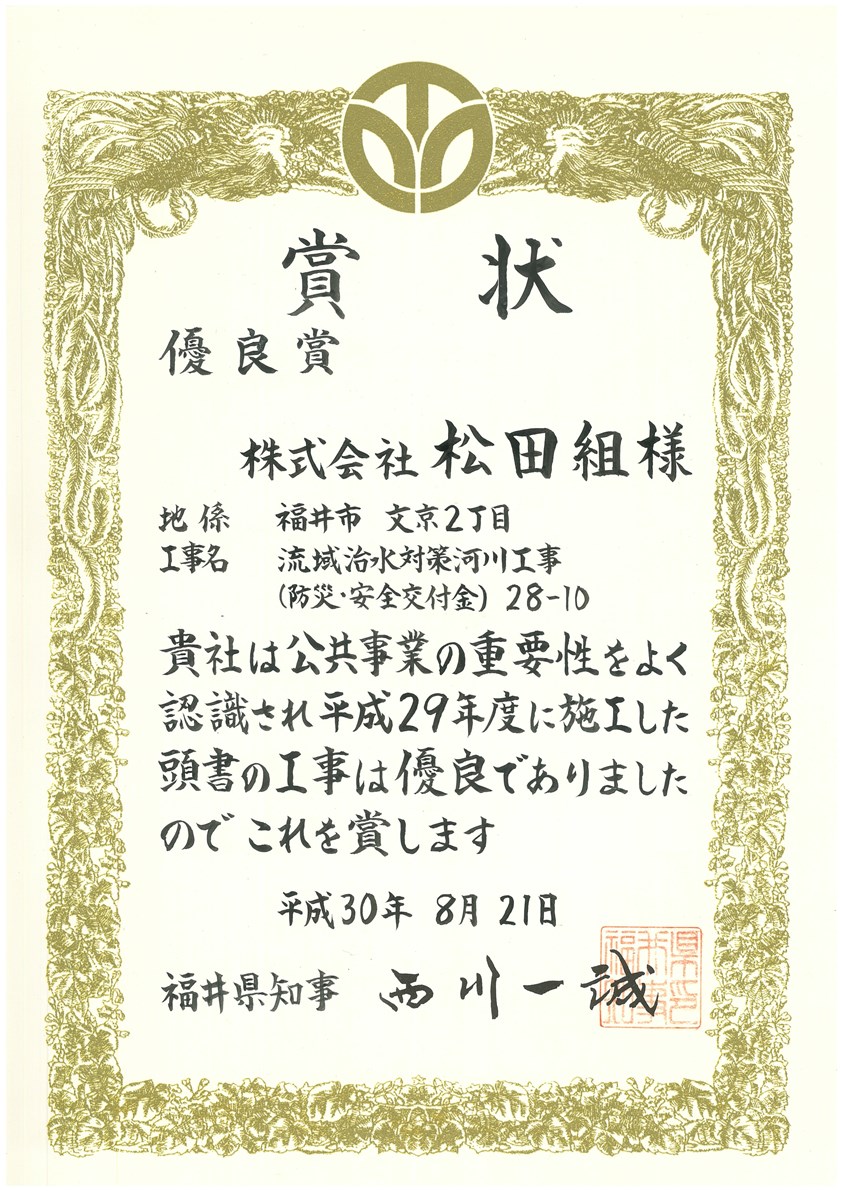 賞 状
優良賞
株式会社 松田組様
地係 福井市 文京2丁目
工事名 流域治水対策河川工事
(防災・安全交付金) 28-10
貴社は公共事業の重要性をよく
認識され平成29年度に施工した
頭書の工事は優良でありました
のでこれを賞します
平成30年 8月 21日
福井県知事 西川一誠